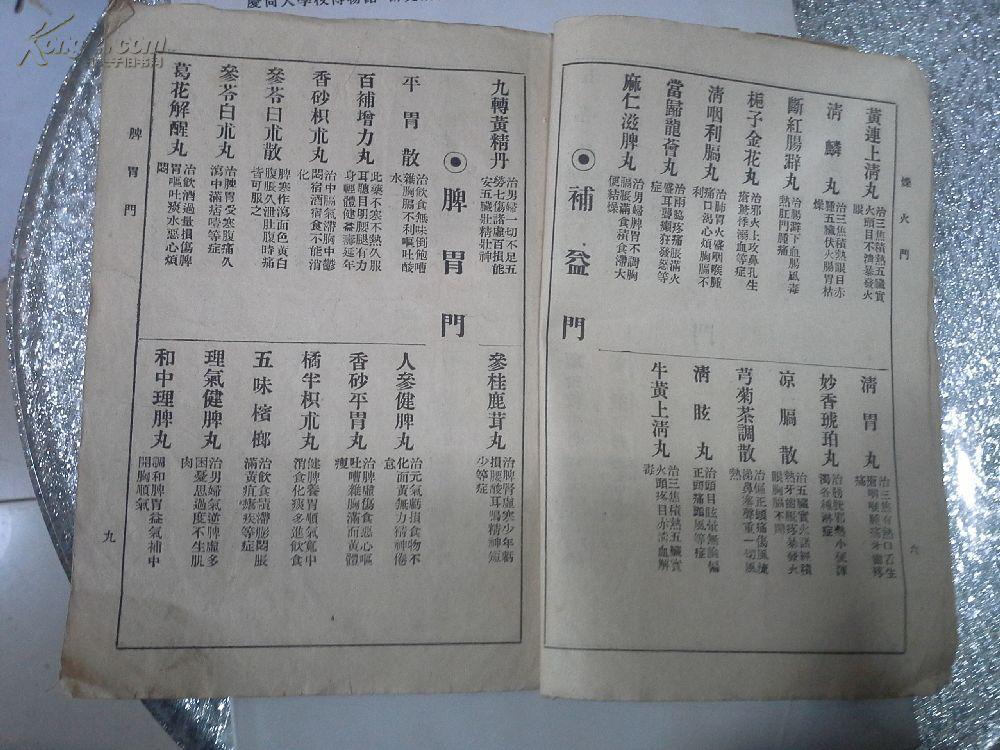 燥火門
黃連上清丸
治三焦積熱五臟實
火頭目不清暴發火
眼
清麟丸
治三焦積熱眼目赤
腫五臟伏火腸胃枯
燥
斷紅腸澼丸
治腸澼下血腸風毒
熱肛門腫痛
梔子金花丸
治邪火上攻鼻孔生
瘡驚悸溺血等症
清咽利膈丸
治肺胃火盛咽喉腫
痛口渴心煩胸膈不
利
當歸龍薈丸
治兩脇疼痛脹滿火
盛耳聾癲狂發怒等
症
麻仁滋脾丸
治男婦脾胃不調胸
膈脹滿食積滯大
便結燥
清胃丸
治三焦有熱口舌生
瘡咽喉腫疼牙齒疼
痛
妙香琥珀丸
治膀胱邪熱小便渾
濁各種淋症
凉膈散
治五臟實火諸經積
熱牙齒腮腫疼暴發火
眼胸膈不開
芎菊茶調散
治偏正頭痛傷風流
涕鼻塞聲重一切風
熱
清眩丸
治頭目眩暈無論偏
正頭痛頭風等症
牛黃上清丸
治三焦積熱五臟實
火頭疼目赤清血解
毒
補益門
六
九轉黃精丹
治男婦一切不足五
勞七傷諸虛百損能
安五臟壯精壯神
參桂鹿茸丸
治脾腎虛寒少年虧
損腰酸耳鳴精神短
少等症
脾胃門
平胃散
治飲食無味倒飽嘈
雜胸膈不利嘔吐酸
水
百補增力丸
此藥不寒不熱久服
耳聰目明腰腿有力
身輕體健益壽延年
香砂枳朮丸
治中膈氣滯胸中鬱
悶宿酒宿食不能消
化
參苓白朮散
脾寒作瀉面色黃白
腹脹久泄肚腹時痛
皆可服之
參苓白朮丸
治脾胃受寒腹痛久
瀉中滿痞噎等症
葛花解醒丸
治飲酒過量損傷脾
胃嘔吐痰水惡心煩
悶
人參健脾丸
治元氣虧損食物不
化面黃無力精神倦
怠
香砂平胃丸
治脾虛傷食惡心嘔
吐嘈雜胸滿面黃體
瘦
橘半枳朮丸
健脾養胃順氣寬中
消食化痰多進飲食
五味檳榔
治飲食積滯膨悶脹
滿黃疸瘧疾等症
理氣健脾丸
治男婦氣逆脾虛多
困憂思過度不生肌
肉
和中理脾丸
調和脾胃益氣補中
開胸順氣
脾胃門
九